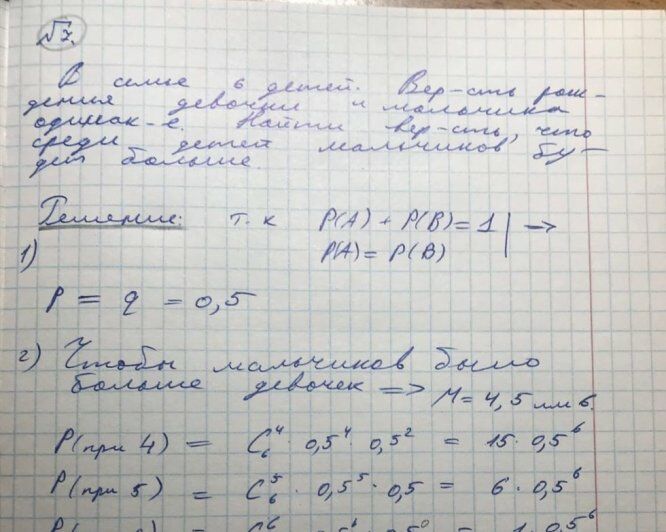 √7.
В семье 6 детей. Вер-сть рож-
дения девочки и мальчика
одинак-е. Найти вер-сть, что
среди детей мальчиков бу-
дет больше.
Решение: т.к P(A) + P(B) = 1 | →
1) P(A) = P(B)
P = q = 0,5
2) Чтобы мальчиков было
больше девочек => М = 4, 5 или 6.
P(при 4) = C₆⁴ · 0,5⁴ · 0,5² = 15 · 0,5⁶
P(при 5) = C₆⁵ · 0,5⁵ · 0,5 = 6 · 0,5⁶